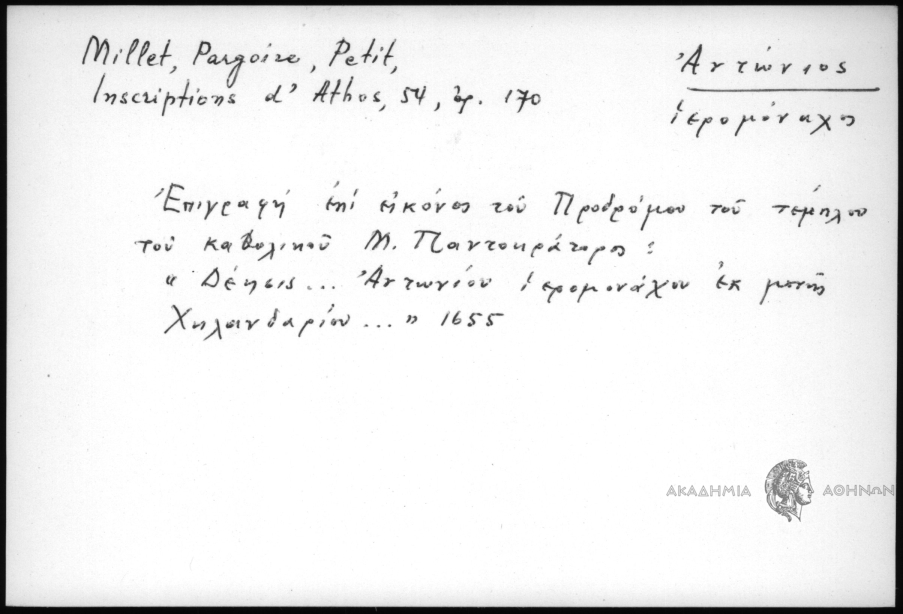 Millet, Pargoire, Petit,
Inscriptions d' Athos, 54, ἀρ. 170
Ἀντώνιος
ἱερομόναχος
Ἐπιγραφή ἐπί εἰκόνος τοῦ Προδρόμου τοῦ τέμπλου
τοῦ καθολικοῦ Μ. Παντοκράτορος :
« Δέησις... Ἀντωνίου ἱερομονάχου ἐκ μονῆς
Χηλανδαρίου ... » 1655
ΑΚΑΔΗΜΙΑ ΑΘΗΝΩΝ